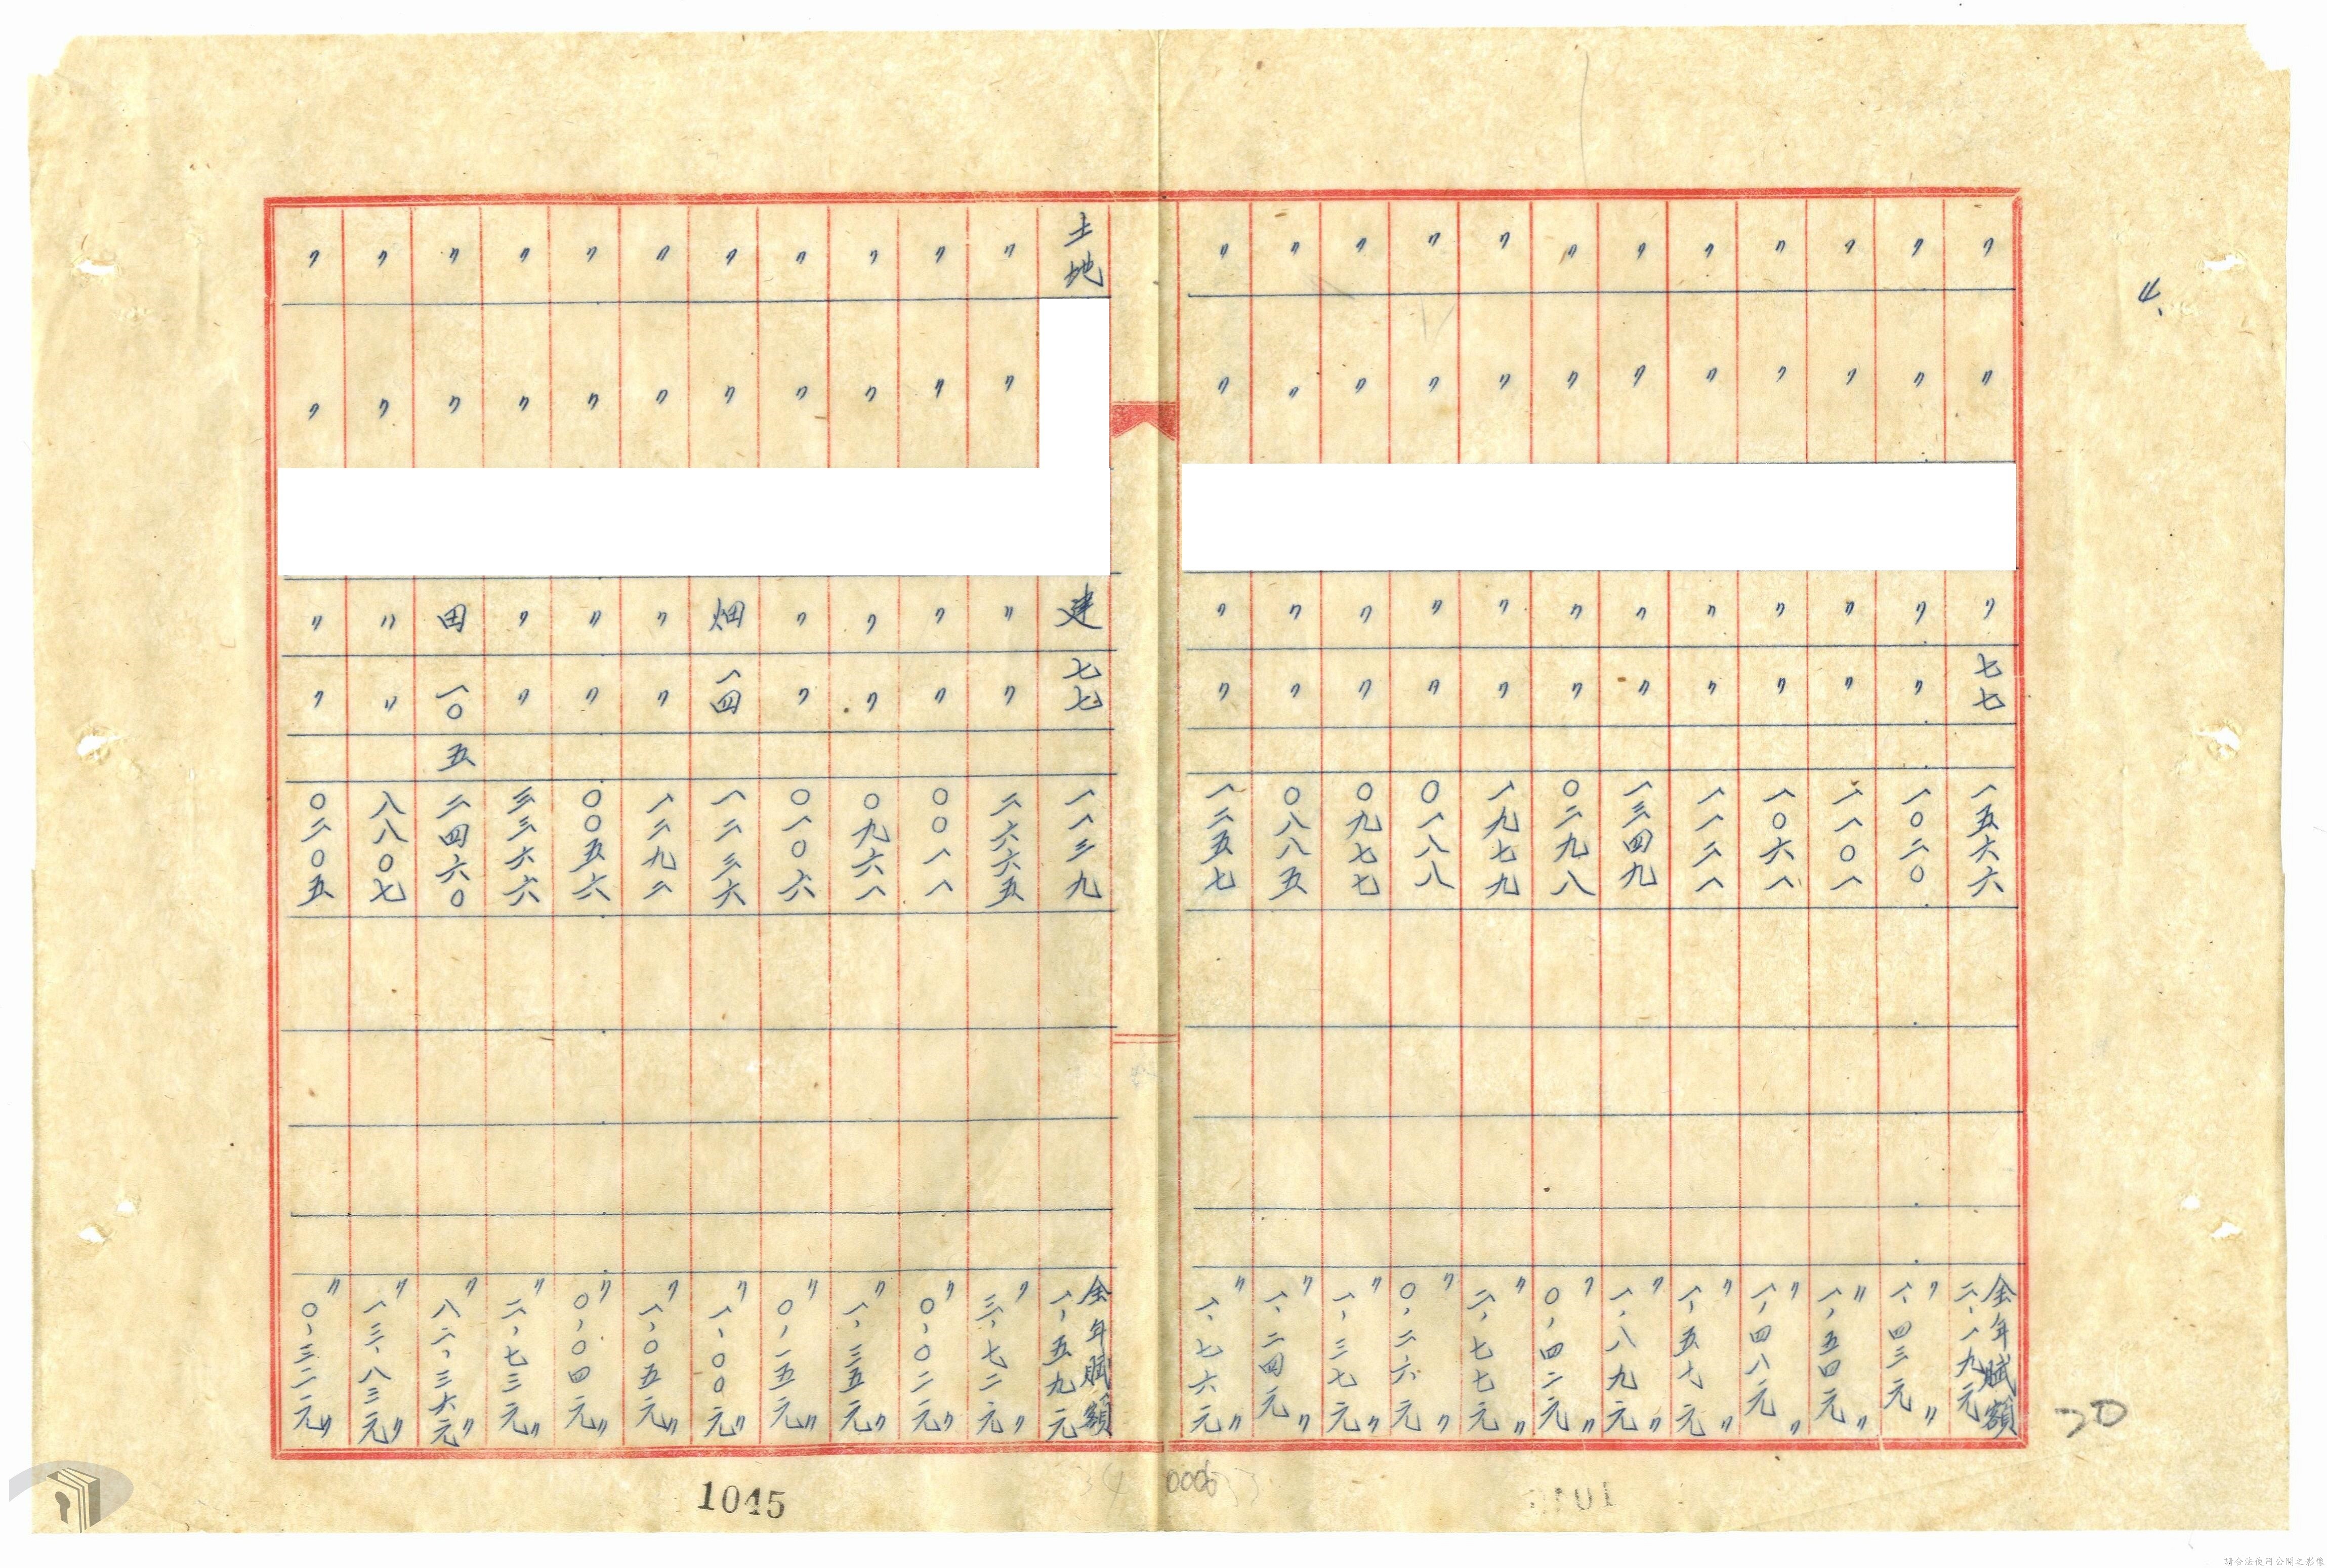 4、
〃 〃 〃 七七 一五六六 全年賦額 二、一九元
〃 〃 〃 〃 一〇二〇 〃 一、四三元 〃
〃 〃 〃 〃 一一〇一 〃 一、五四元 〃
〃 〃 〃 〃 一〇六一 〃 一、四八元 〃
〃 〃 〃 〃 一一二一 〃 一、五七元 〃
〃 〃 〃 〃 一三四九 〃 一、八九元 〃
〃 〃 〃 〃 〇二九八 〃 〇、四二元 〃
〃 〃 〃 〃 一九七九 〃 二、七七元 〃
〃 〃 〃 〃 〇一八八 〃 〇、二六元 〃
〃 〃 〃 〃 〇九七七 〃 一、三七元 〃
〃 〃 〃 〃 〇八八五 〃 一、二四元 〃
〃 〃 〃 〃 一二五七 〃 一、七六元 〃
土地 建 七七 一一三九 全年賦額 一、五九元
〃 〃 〃 〃 二六六五 〃 三、七二元 〃
〃 〃 〃 〃 〇〇一一 〃 〇、〇二元 〃
〃 〃 〃 〃 〇九六一 〃 一、三五元 〃
〃 〃 〃 〃 〇一〇六 〃 〇、一五元 〃
〃 〃 畑 一四 一二三六 〃 一、〇〇元 〃
〃 〃 〃 〃 一二九二 〃 一、〇五元 〃
〃 〃 〃 〃 〇〇五六 〃 〇、〇四元 〃
〃 〃 〃 〃 三三六六 〃 二、七三元 〃
〃 〃 田 一〇 五 二四六〇 〃 八二、三六元 〃
〃 〃 〃 〃 八八〇七 〃 一三、八三元 〃
〃 〃 〃 〃 〇二〇五 〃 〇、三二元 〃
20
1045
請合法使用公開之影像